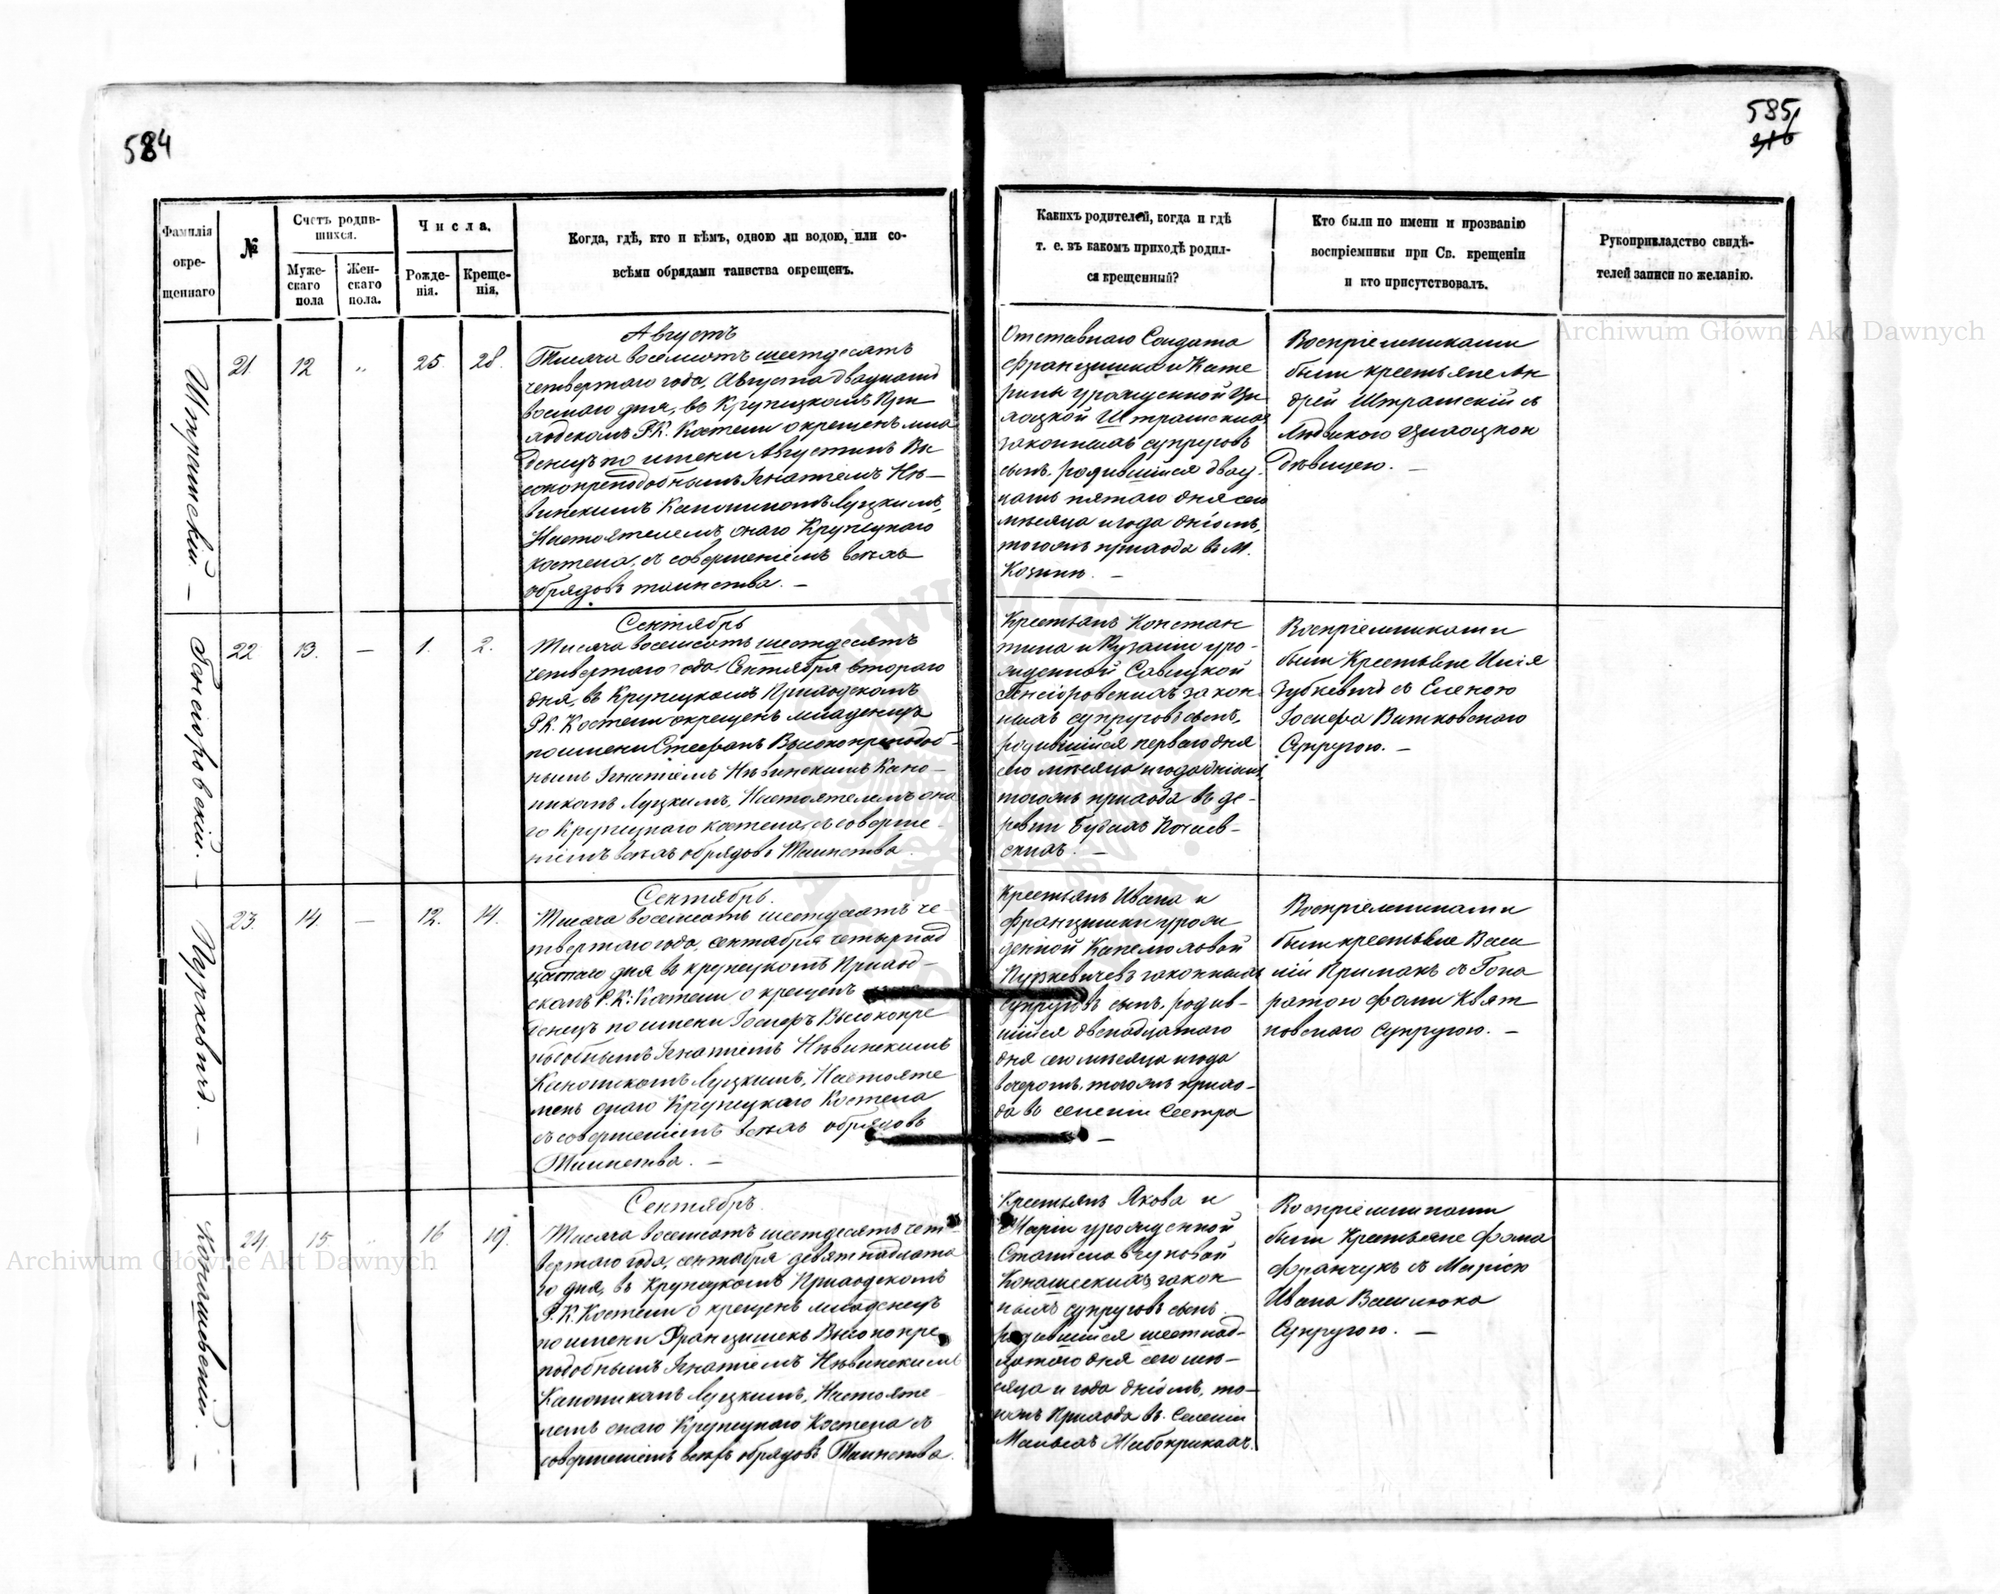 584
585
316
Фамилія окре-щеннаго
№
Счетъ родив-шихся.
Муже-скаго пола
Жен-скаго пола.
Числа.
Рожде-нія.
Креще-нія.
Когда, гдѣ, кто и кѣмъ, одною ли водою, или со-
всѣми обрядами таинства окрещенъ.
Какихъ родителей, когда и гдѣ
т. е. въ какомъ приходѣ родил-
ся крещенный?
Кто были по имени и прозванію
воспріемники при Св. крещеніи
и кто присутствовалъ.
Рукоприкладство свидѣ-
телей записи по желанію.
21
12
25
28.
Августъ
Тысяча восемсотъ шестдесятъ
четвертаго года, Августа двадцать
восмаго дня, въ Крупецкомъ При
ходскомъ Р.К. Костели окрещенъ мла
денецъ по имени Августинъ Вы
сокопреподобнымъ Игнатіемъ Нѣ-
винскимъ Каноникомъ Луцкимъ,
Настоятелемъ онаго Крупецкаго
костела, съ совершеніемъ всѣхъ
обрядовъ таинства. —
Отставнаго Солдата
Францишка и Кате
рины урожденной
законныхъ супруговъ
сынъ, родившійся двад-
цать пятаго дня сего
мѣсяца и года днiомъ,
тогожъ прихода въ М.
Козинѣ. —
Воспріемниками
были крестьяне Ан
дрей Штрашскій съ
Людвикою
Дѣвицею. —
Гонсіоровскій. —
22
13.
—
1.
2.
Сентябрь
Тысяча восемсотъ шестдесятъ
четвертаго года, Сентября втораго
дня, въ Крупецкомъ Приходскомъ
Р.К. Костели окрещенъ младенецъ
по имени Стефанъ Высокопреподоб-
нымъ Игнатіемъ Нѣвинскимъ Кано-
никомъ Луцкимъ, Настоятелемъ она
го Крупецкаго костела, съ соверше-
ніемъ всѣхъ обрядовъ Таинства.
Крестьянъ Констан
тина и Розаліи уро-
жденной Савицкой
Гонсіоровскихъ закон-
ныхъ супруговъ сынъ,
родившійся перваго дня
сего мѣсяца и года днiомъ,
тогожъ прихода въ де-
ревни Будкахъ
скихъ. —
Воспріемниками
были Крестьяне Илія
Зубкевичъ съ Еленою
Іосифа Витковскаго
Супругою. —
Пуркевичъ. —
23.
14.
—
12.
14.
Сентябрь.
Тысяча восемсотъ шестдесятъ че-
твертаго года, сентября четырнад
цатаго дня въ крупецкомъ Приход-
скомъ Р.К. Костели окрещенъ
денецъ по имени Іосифъ Высокопре
подобнымъ Игнатіемъ Нѣвинскимъ
Каноникомъ Луцкимъ, Настояте
лемъ онаго Крупецкаго Костела
съ совершеніемъ всѣхъ обрядовъ
Таинства. —
Крестьянъ Ивана и
Францишки урож
денной Капелюховой
Пуркевичевъ законныхъ
супруговъ сынъ, родив-
шійся двенадцатаго
дня сего мѣсяца и года
вечеромъ, тогожъ прихо-
да въ селеніи Сестра
—
Воспріемниками
были крестьяне Васи
лій Примакъ съ Гоно
ратою Фомы Квят
ковскаго Супругою. —
Конашевскій. —
24.
15
16
19.
Сентябрь.
Тысяча восемсотъ шестдесятъ чет-
вертаго года, сентября девятнадцата
го дня, въ Крупецкомъ Приходскомъ
Р.К. Костели окрещенъ младенецъ
по имени Францишекъ Высокопре
подобнымъ Игнатіемъ Нѣвинскимъ
Каноникомъ Луцкимъ, Настояте-
лемъ онаго Крупецкаго Костела съ
совершеніемъ всѣхъ обрядовъ Таинства.
Крестьянъ Якова и
Маріи урожденной
Станиславчуковой
Конашевскихъ закон
ныхъ супруговъ сынъ
родившійся шестнад-
цатаго дня сего мѣ-
сяца и года днiомъ, то-
гожъ Прихода въ Селеніи
Малыхъ Жабокрикахъ.
Воспріемниками
были Крестьяне Фома
Франчукъ съ Маріею
Ивана Васылюка
Супругою. —
Archiwum Główne Akt Dawnych
Archiwum Główne Akt Dawnych